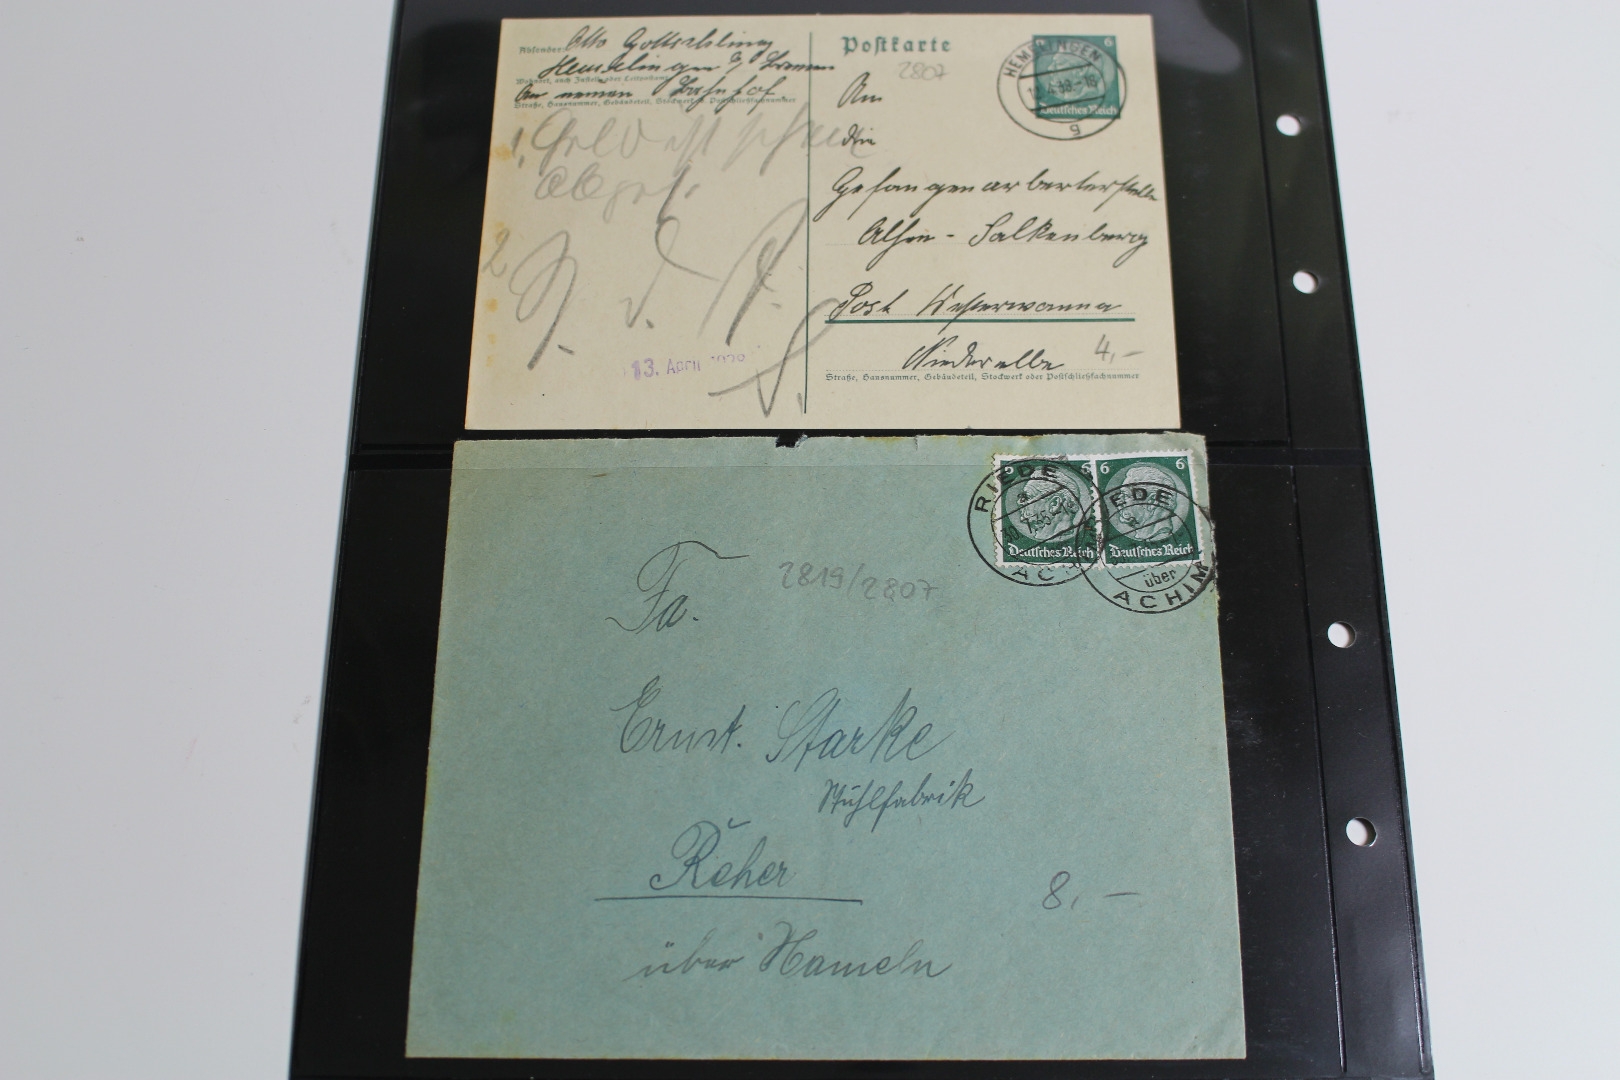 Absender: Otto
Hemelingen b/ Bremen
Wohnort, auch Zustell- oder Leitpostamt
Am neuen Bahnhof
Straße, Hausnummer, Gebäudeteil, Stockwerk od. Postschließfachnummer
1, Geld ist schon
abges.
2
13. April 1938
Postkarte
2807
HEMELINGEN
4.38
g
6
Deutsches Reich
An
die
Gefangenarbeiterstelle
Ahlen - Falkenberg
Post Westerwanna
Niederelbe
4,–
Straße, Hausnummer, Gebäudeteil, Stockwerk oder Postschließfachnummer
6 6
Deutsches Reich
6 6
Deutsches Reich
RIEDE
a
ACHIM
RIEDE
a
über
ACHIM
2819/2807
Fa.
Ernst. Starke
Stühlfabrik
Reher
8,–
über Hameln